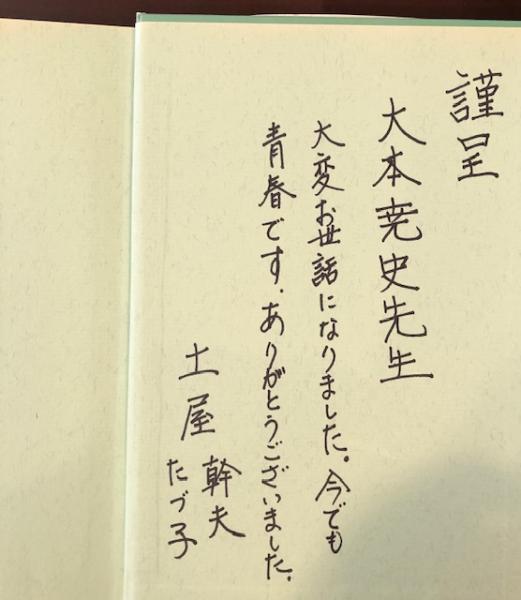 謹呈
大本尭史先生
大変お世話になりました。今でも
青春です。ありがとうございました。
土屋 幹夫
たづ子